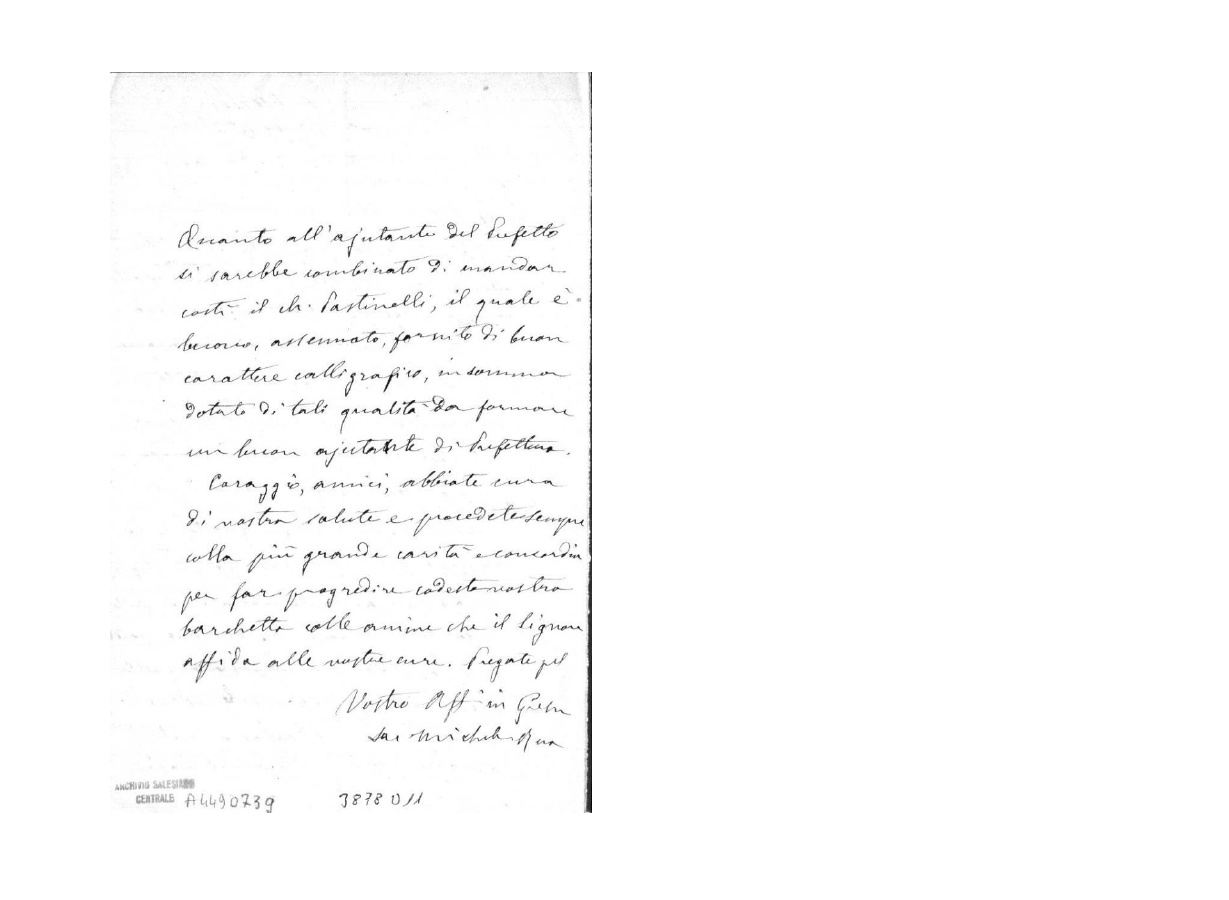 Quanto all'ajutante del Prefetto
si sarebbe combinato di mandar
costì il ch. Pastinelli, il quale è
buono, assennato, fornito di buon
carattere calligrafico, insomma
dotato di tali qualità da formare
un buon ajutante di Prefettura.
Coraggio, amici, abbiate cura
di vostra salute e procedete sempre
colla più grande carità e concordia
per far progredire codesta nostra
barchetta colle anime che il Signore
affida alle vostre cure. Pregate pel
Vostro Aff. in Gesù
Sac. Michele Rua
ARCHIVIO SALESIANO
CENTRALE A4490739 3878 D11